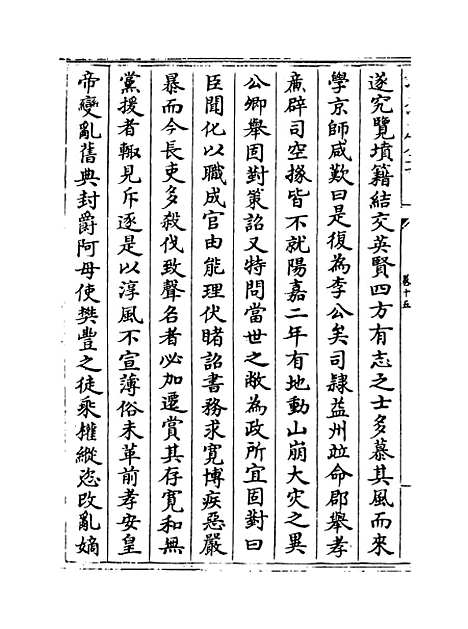 卷十五
遂究覽墳籍結交英賢四方有志之士多慕其風而來
學京師咸歎曰是復為李公矣司隸益州並命郡舉孝
廉辟司空掾皆不就陽嘉二年有地動山崩火灾之異
公卿舉固對策詔又特問當世之敝為政所宜固對曰
臣聞化以職成官由能理伏睹詔書務求寛博疾惡嚴
暴而今長吏多殺伐致聲名者必加遷賞其存寛和無
黨援者輙見斥逐是以淳風不宣薄俗未革前孝安皇
帝變亂舊典封爵阿母使樊豐之徒乘權縱恣改亂嫡